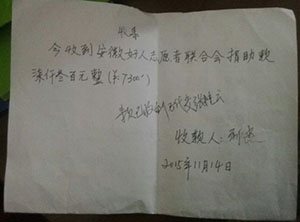 收条
今收到安徽好人志愿者联合会捐助款
柒仟叁百元整（¥7300）
收款人：
2015年11月14日